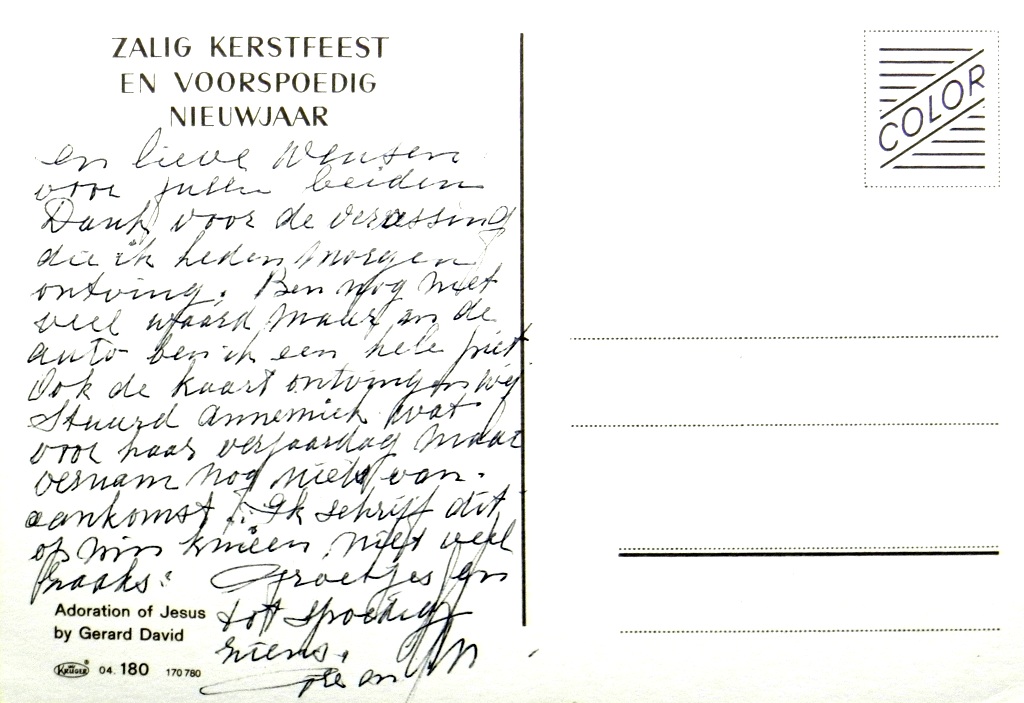 ZALIG KERSTFEEST
EN VOORSPOEDIG
NIEUWJAAR
en lieve Wensen
voor jullie beiden
Dank voor de verassing
die ik heden morgen
ontving. Ben nog niet
veel waard maar in de
auto ben ik een hele piet.
Ook de kaart ontvingen wij
Stuurd Annemiek wat
voor haar verjaardag maar
vernam nog niets van.
aankomst! Ik schrijf dit
op mijn knieen niet veel
Groetjes en
tot spoedig
ziens.
COLOR
Adoration of Jesus
by Gerard David
KRÜGER 04.180 170780